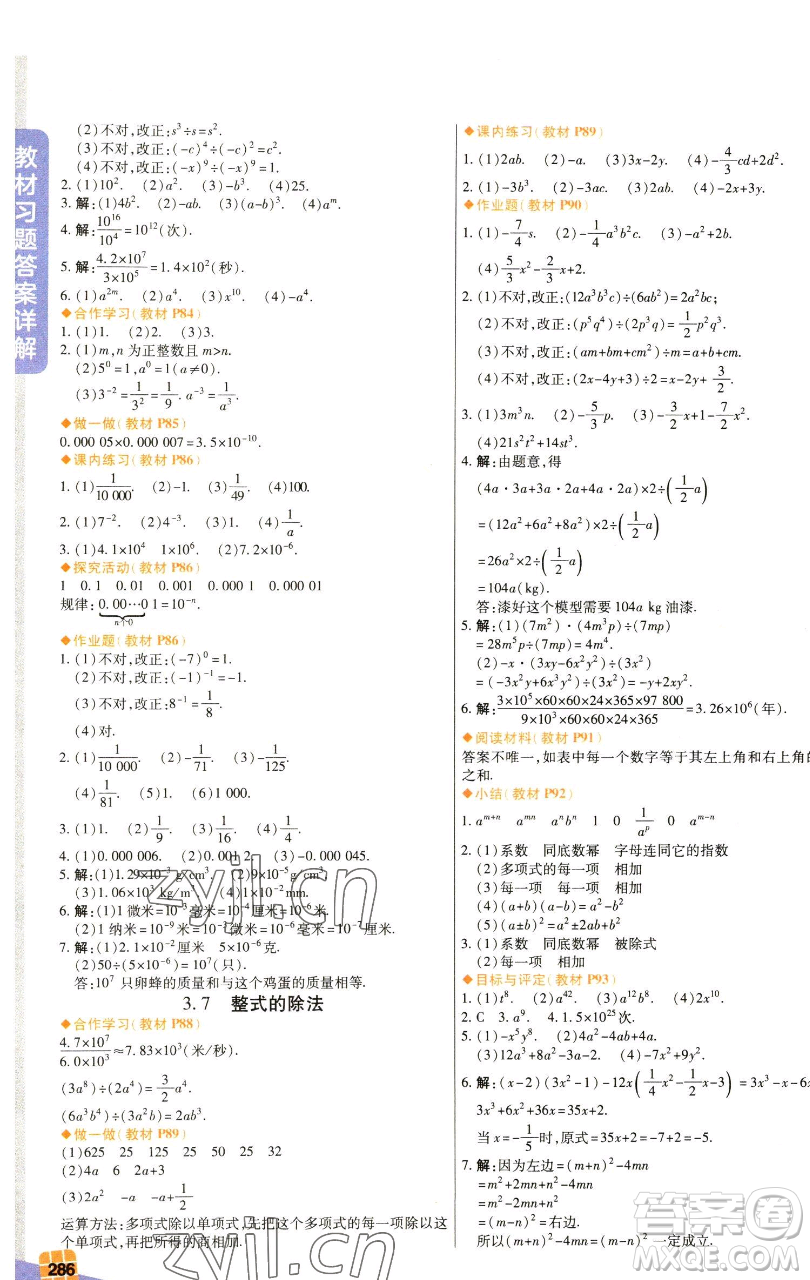 教材习题答案详解
(2)不对,改正:s³÷s=s².
(3)不对,改正:(-c)⁴÷(-c)²=c².
(4)不对,改正:(-x)⁹÷(-x)⁹=1.
2. (1)10². (2)a⁴. (3)-b³. (4)25.
3. 解:(1)4b². (2)-ab. (3)(a-b)³. (4)aᵐ.
4. 解:10¹⁶/10⁴=10¹²(次).
5. 解:4.2×10⁷/3×10⁵=1.4×10²(秒).
6. (1)a²ᵐ. (2)a⁴. (3)x¹⁰. (4)-a⁴.
◆合作学习(教材 P84)
1. (1)1. (2)2. (3)3.
2. (1)m,n 为正整数且 m>n.
(2)5⁰=1,a⁰=1(a≠0).
(3)3⁻²=1/3²=1/9. a⁻³=1/a³.
◆做一做(教材 P85)
0.000 05×0.000 007=3.5×10⁻¹⁰.
◆课内练习(教材 P86)
1. (1)1/10 000. (2)-1. (3)1/49. (4)100.
2. (1)7⁻². (2)4⁻³. (3)1. (4)1/a.
3. (1)4.1×10⁴ 1×10⁶. (2)7.5×10⁻⁶.
◆探究活动(教材 P86)
1 0.1 0.01 0.001 0.000 1 0.000 01
规律:0.00…01=10⁻ⁿ.
n个0
◆作业题(教材 P86)
1. (1)不对,改正:(-7)⁰=1.
(2)不对,改正:(-1)⁻¹=-1.
(3)不对,改正:8⁻¹=1/8.
(4)对.
2. (1)1/10 000. (2)-1/71. (3)-1/125.
(4)1/81. (5)1. (6)1 000.
3. (1)1. (2)1/9. (3)1/16. (4)-1/4.
4. (1)0.000 006. (2)0.001 2. (3)-0.000 045.
5. 解:(1)1.29×10⁻³ g/cm³. (2)9×10⁻²⁸ g.
(3)1.06×10³ kg/m³.
6. 解:(1)1 微米=10⁻³ 毫米=10⁻⁶ 米.
(2)1 纳米=10⁻⁹ 米=10⁻³ 微米=10⁻⁶ 毫米=10⁻⁷ 厘米.
7. 解:(1)2.1×10⁻² 只 5×10⁻⁶ 克.
(2)50÷(5×10⁻⁶)=10⁷(只).
答:10⁷ 只卵蜂的质量和与这个鸡蛋的质量相等.
3.7 整式的除法
◆合作学习(教材 P88)
4.7×10⁷/6.0×10³≈7.83×10³(秒).
(3a⁸)÷(2a⁴)=3/2a⁴.
(6a³b⁴)÷(3a²b)=2ab³.
◆做一做(教材 P89)
(1)625 125 25 32
(2)4a 6 2a+3
(3)2a² -a -a+1/2
运算方法:多项式除以单项式,先把这个多项式的每一项除以这
个单项式,再把所得的商相加.
286
◆课内练习(教材 P89)
1. (1)2ab. (2)-a. (3)3x-2y. (4)-4/3cd+2d².
2. (1)-3b³. (2)-3ac. (3)2ab. (4)-2x+4y.
◆作业题(教材 P90)
1. (1)-7/4s. (2)-1/4a³b²c. (3)-a²+2b.
(4)5/3x²-1/3x+2.
2. (1)不对,改正:(12a³b³c)÷(6ab²)=2a²bc;
(2)不对,改正:(p⁵q⁴)÷(2p³q)=1/2p²q³.
(3)不对,改正:(am+bm+cm)÷m=a+b+c.
(4)不对,改正:(2x-4y+3)÷2=x-2y+3/2.
3. (1)3m³n. (2)-5/3p. (3)-3/2x+1-7/2x².
(4)21s²t²+14st³.
4. 解:由题意,得
(4a·3a+3a·2a+4a·2a)×2÷(1/2a)
=(12a²+6a²+8a²)×2÷(1/2a)
=26a²×2÷(1/2a)
=104a(kg).
答:漆好这个模型需要 104a kg 油漆.
5. 解:(1)(7m²)·(4m³p)÷(7mp)
=28m⁵p÷(7mp)=4m⁴.
(2)-x·(3xy-6x²y²)÷(3x²)
=(-3x²y+6x³y²)÷(3x²)=-y+2xy².
6. 解:3×10⁵×60×60×24×365×97 800/9×10³×60×60×24×365=3.26×10⁶(年).
◆阅读材料(教材 P91)
答案不唯一,如表中每一个数字等于其左上角和右上角的
之和.
◆小结(教材 P92)
1. aᵐ⁺ⁿ aᵐⁿ aⁿbⁿ 1 0 1/aᵖ 0 aᵐ⁻ⁿ
2. (1)系数 同底数幂 字母连同它的指数
(2)多项式的每一项 相加
(3)每一项 每一项 相加
(4)(a+b)(a-b)=a²-b²
(5)(a±b)²=a²±2ab+b²
3. (1)系数 同底数幂 被除式
(2)每一项 相加
◆目标与评定(教材 P93)
1. (1)t⁸. (2)a⁴². (3)x¹⁰.
2. C 3. a⁹. 4. 1.5×10²⁵次.
5. (1)-x⁵y⁸. (2)-4ab+4a.
(3)12a³+8a²-3a-2. (4)-7x²+9y².
6. 解:(x-2)(3x²-1)-12x(1/4x²-1/2x-3)=3x³-
3x³+6x²+36x=35x+2.
当 x=-1/5时,原式=-7+2=-5.
7. 解:因为左边=(m+n)²-4mn
=m²+2mn+n²-4mn
=m²-2mn+n²
=(m-n)²=右边.
所以(m+n)²-4mn=(m-n)²一定成立.
zyjl.cn
zyjl.cn
答案卷